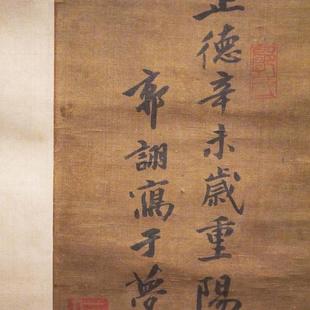 正德辛未歲重陽
郭詡寫于夢